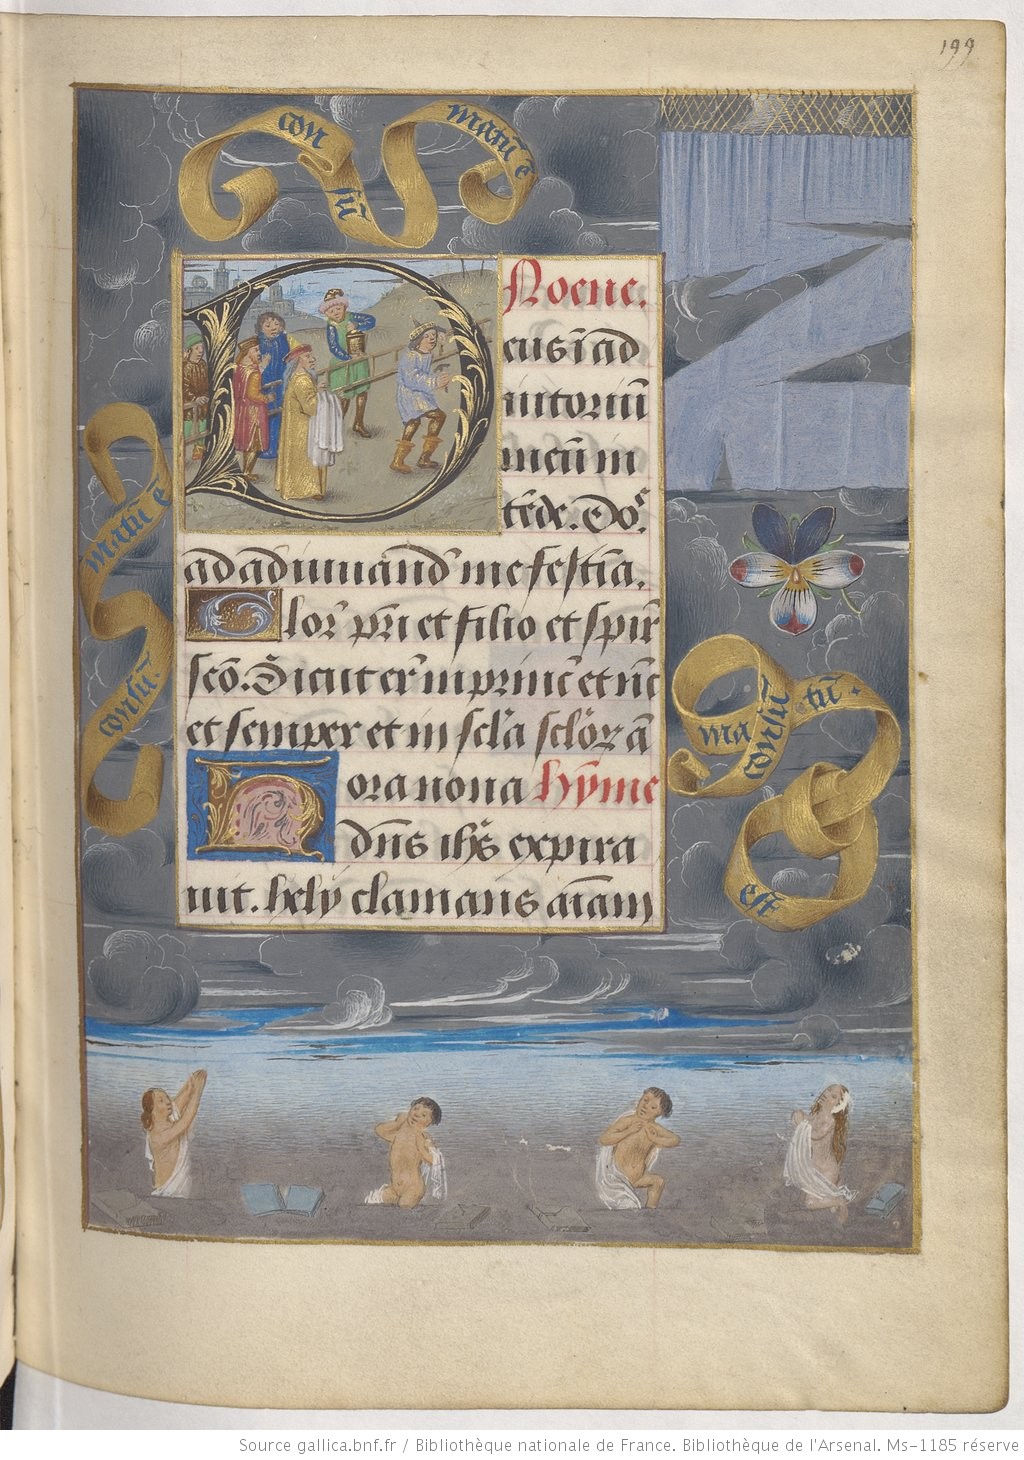 199
con
sũ
matũ ẽ
Noene.
eus ĩ ad
iutoriũ
meũ in
tẽde. Do᷒.
ad adiuuãd᷒ me festĩa.
lor᷒ pr̃i et filio et spir᷒
scõ. Sicut er᷒ in princ̃ et nc̃
et semper et in scl̃a scl̃oꝝ ã
ora nona hỹme
dñs ih̃s expira
uit. hely clamans aĩam
matũ ẽ
consũ.
ma
consũ
tũ.
est
Source gallica.bnf.fr / Bibliothèque nationale de France. Bibliothèque de l'Arsenal. Ms-1185 réserve